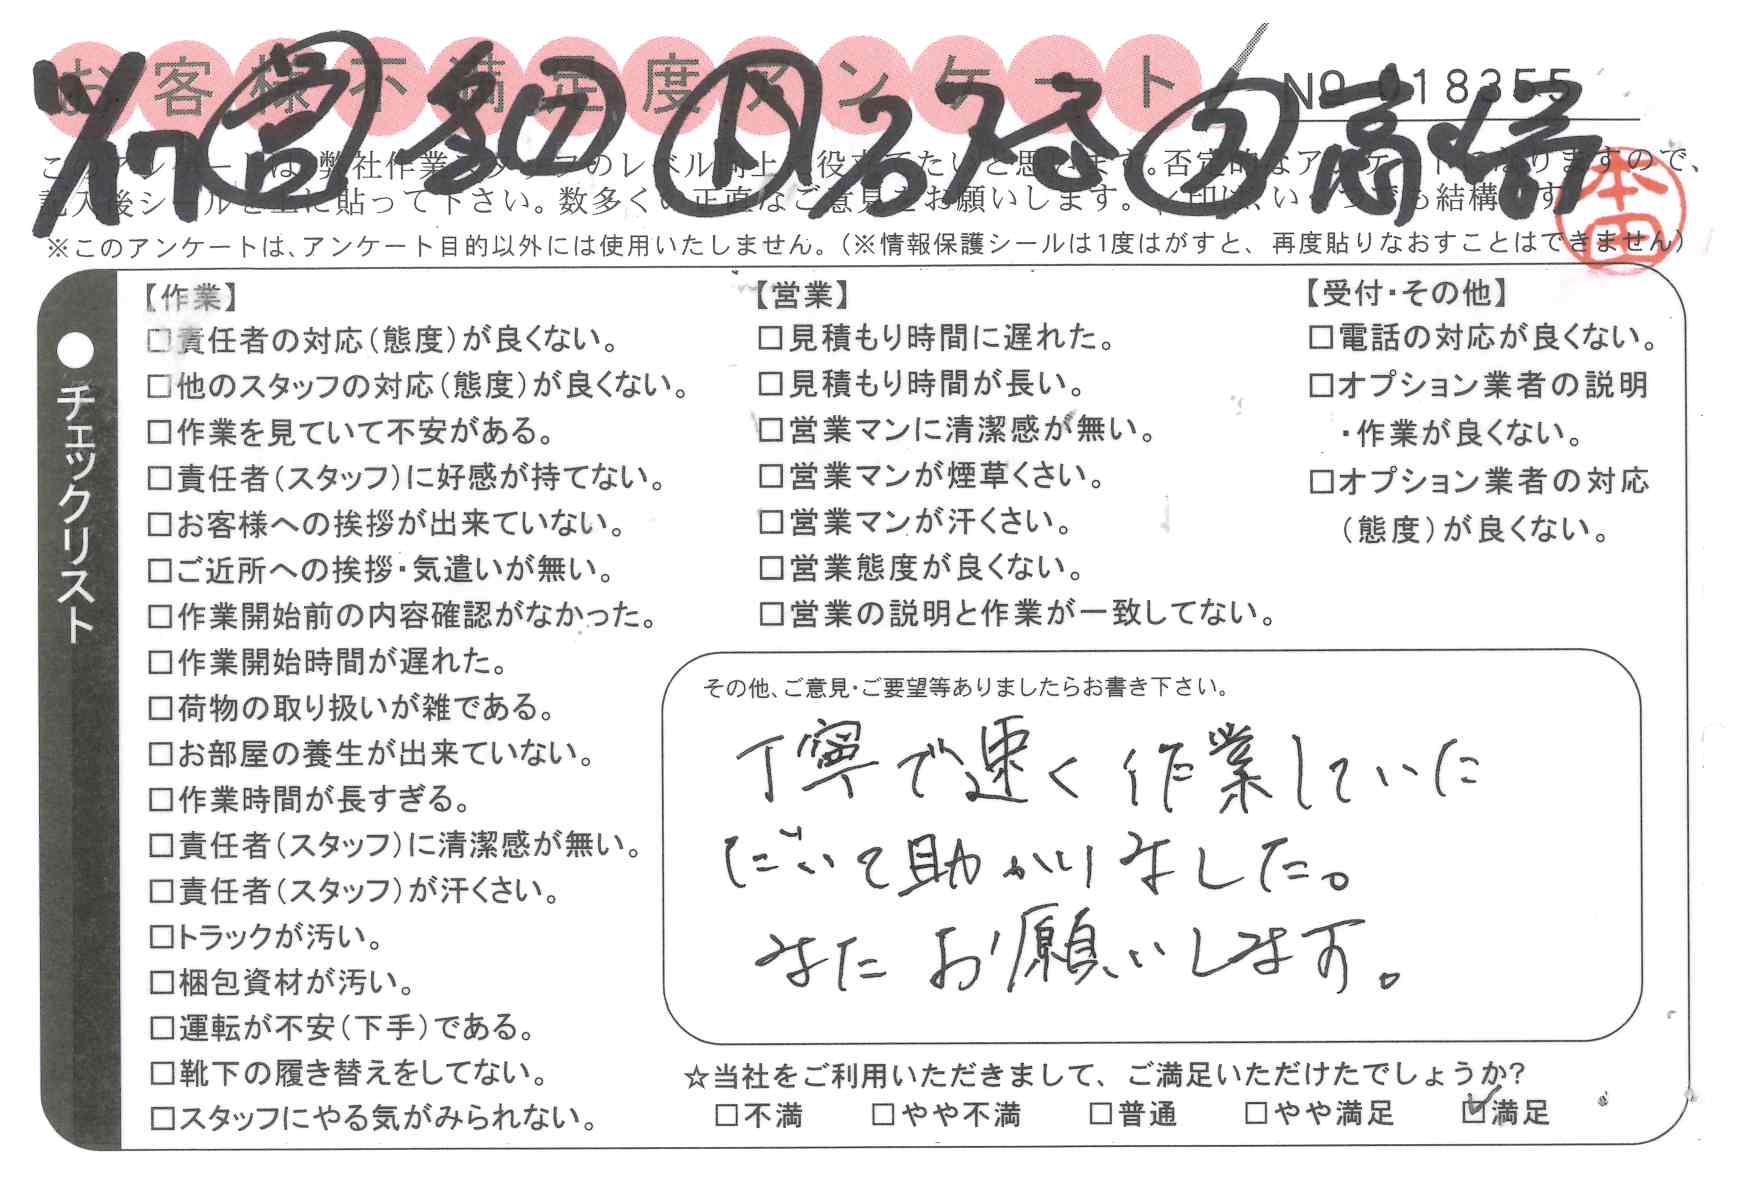 お客様不満足度アンケート
No 018355
※このアンケートは、アンケート目的以外には使用いたしません。（※情報保護シールは1度はがすと、再度貼りなおすことはできません）
本田
●チェックリスト
【作業】
□責任者の対応（態度）が良くない。
□他のスタッフの対応（態度）が良くない。
□作業を見ていて不安がある。
□責任者（スタッフ）に好感が持てない。
□お客様への挨拶が出来ていない。
□ご近所への挨拶・気遣いが無い。
□作業開始前の内容確認がなかった。
□作業開始時間が遅れた。
□荷物の取り扱いが雑である。
□お部屋の養生が出来ていない。
□作業時間が長すぎる。
□責任者（スタッフ）に清潔感が無い。
□責任者（スタッフ）が汗くさい。
□トラックが汚い。
□梱包資材が汚い。
□運転が不安（下手）である。
□靴下の履き替えをしてない。
□スタッフにやる気がみられない。
【営業】
□見積もり時間に遅れた。
□見積もり時間が長い。
□営業マンに清潔感が無い。
□営業マンが煙草くさい。
□営業マンが汗くさい。
□営業態度が良くない。
□営業の説明と作業が一致してない。
【受付・その他】
□電話の対応が良くない。
□オプション業者の説明
・作業が良くない。
□オプション業者の対応
（態度）が良くない。
その他、ご意見・ご要望等ありましたらお書き下さい。
丁寧で速く作業していた
だいて助かりました。
またお願いします。
☆当社をご利用いただきまして、ご満足いただけたでしょうか?
□不満 □やや不満 □普通 □やや満足 ☑満足